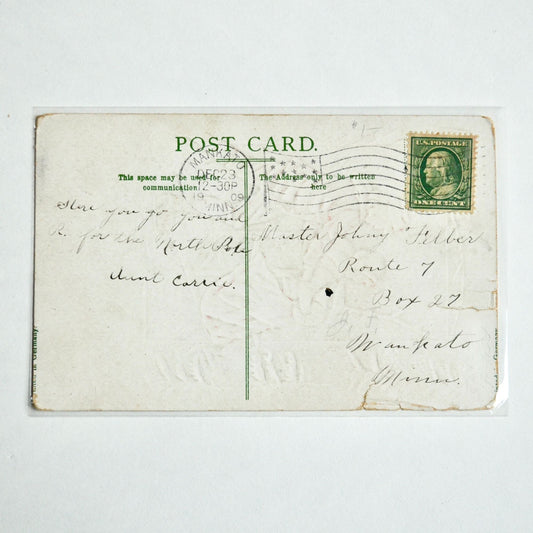 $1-
POST CARD.
U.S. POSTAGE
ONE CENT
MANKATO
DEC 23
12-30P
1909
MINN.
This space may be used for
communication
The Address only to be written
here
Here you go you and
R. for the North Pole
Aunt Carrie.
Master Johny
Route 7
Box 27
Mankato
Minn.
in Germany.